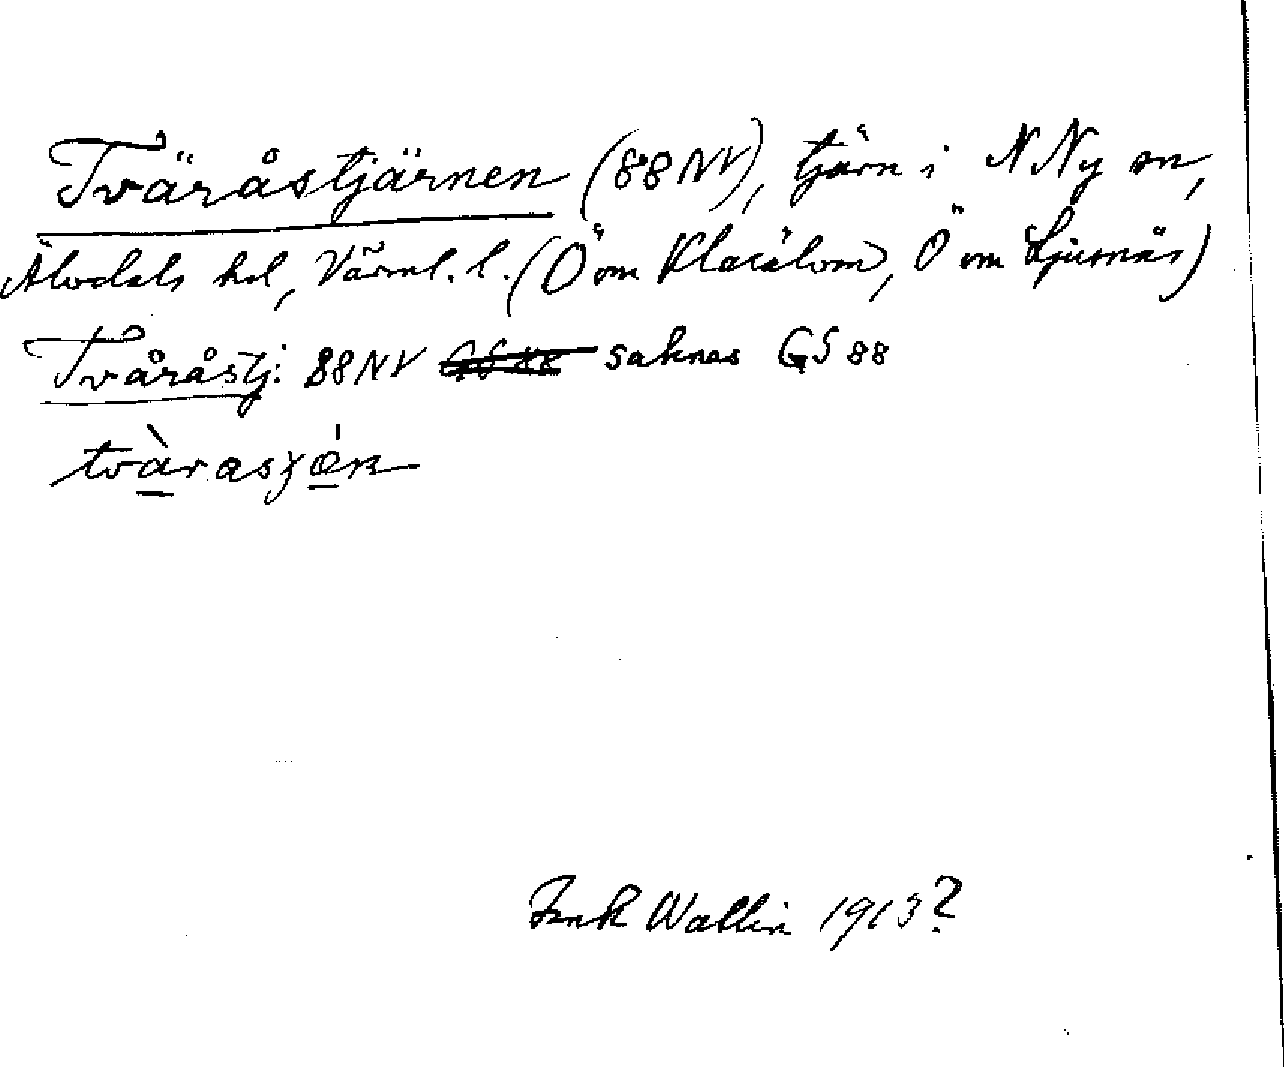 Tväråstjärnen (88NV), tjärn i N Ny sn,
Älvdals hd, Värml. l. (Ö om Klarälven, Ö om Ljusnäs)
Tväråstj: 88NV GS 88 saknas GS 88
tvàrasʒǿn
Wallin 1913?